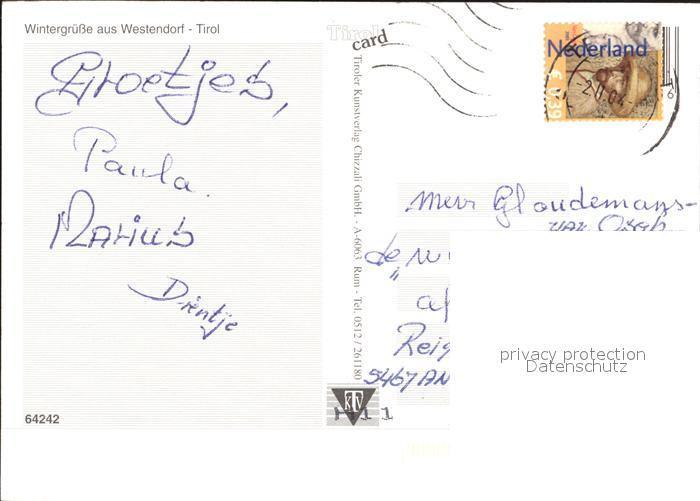 Wintergrüße aus Westendorf - Tirol
Groetjes,
Paula.
Marius
Dientje
64242
Tirol
card
Tiroler Kunstverlag Chizzali GmbH. - A-6063 Rum - Tel. 0512 / 261180
KTV
Nederland
€ 0,39
Mevr Gloudemans-
van Osch
de
Reig
5467 AN
privacy protection
Datenschutz